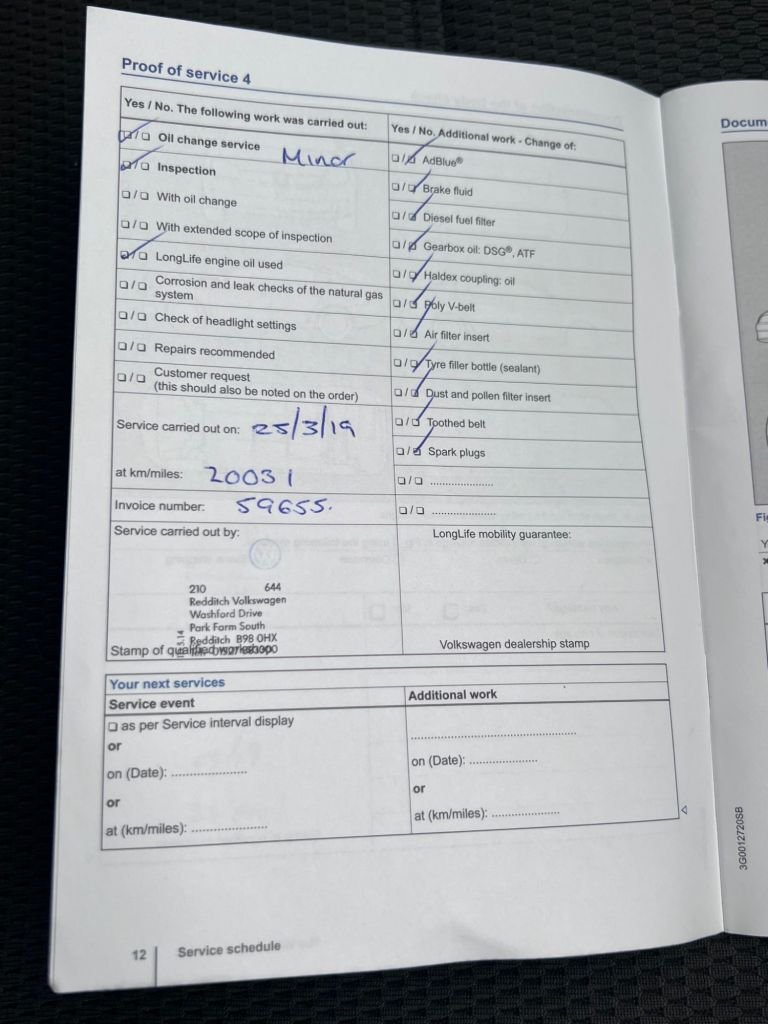 Proof of service 4
Yes / No. The following work was carried out:
☑/☐ Oil change service Minor
☑/☐ Inspection
☐/☐ With oil change
☐/☐ With extended scope of inspection
☑/☐ LongLife engine oil used
☐/☐ Corrosion and leak checks of the natural gas
system
☐/☐ Check of headlight settings
☐/☐ Repairs recommended
☐/☐ Customer request
(this should also be noted on the order)
Service carried out on: 25/3/19
at km/miles: 20031
Invoice number: 59655.
Service carried out by:
210 644
Redditch Volkswagen
Washford Drive
Park Farm South
Redditch B98 0HX
Stamp of qualified workshop
Yes / No. Additional work - Change of:
☐/☑ AdBlue®
☐/☑ Brake fluid
☐/☑ Diesel fuel filter
☐/☑ Gearbox oil: DSG®, ATF
☐/☑ Haldex coupling: oil
☐/☑ Poly V-belt
☐/☑ Air filter insert
☐/☑ Tyre filler bottle (sealant)
☐/☑ Dust and pollen filter insert
☐/☑ Toothed belt
☐/☑ Spark plugs
☐/☐ .....................
☐/☐ .....................
LongLife mobility guarantee:
Volkswagen dealership stamp
Your next services
Service event
☐ as per Service interval display
or
on (Date): .....................
or
at (km/miles): .....................
Additional work
..............................................
on (Date): .....................
or
at (km/miles): .....................
12 Service schedule
Docum
Fi
Y
3G0012720SB